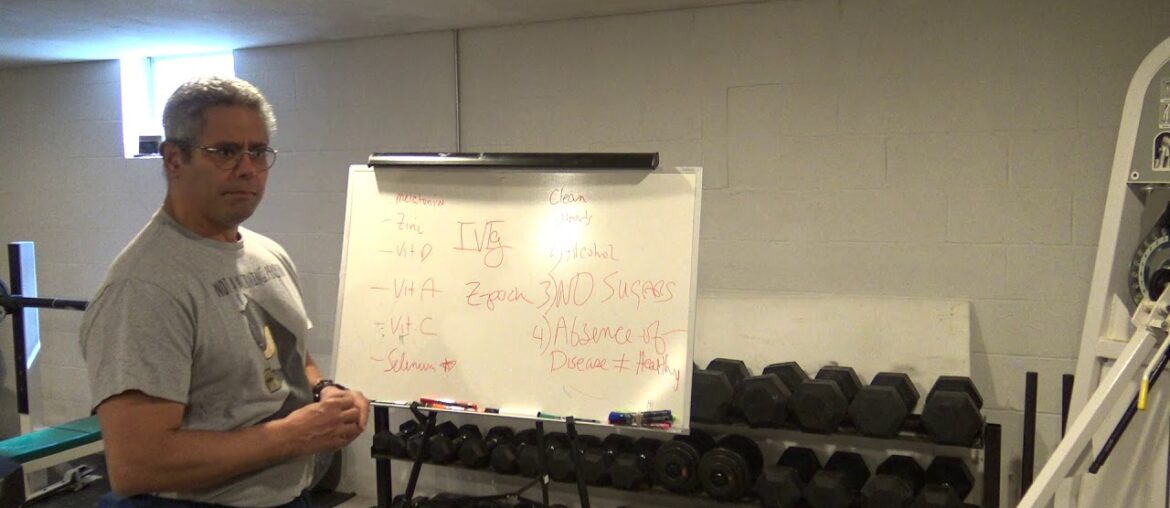 Melatonin
- Zinc
- Vit D
- Vit A
- Vit C
- Selinium
IVIg
Z-pack
Clean
Hands
Alcohol
3) NO SUGARS
4) Absence of
Disease ≠ Healthy